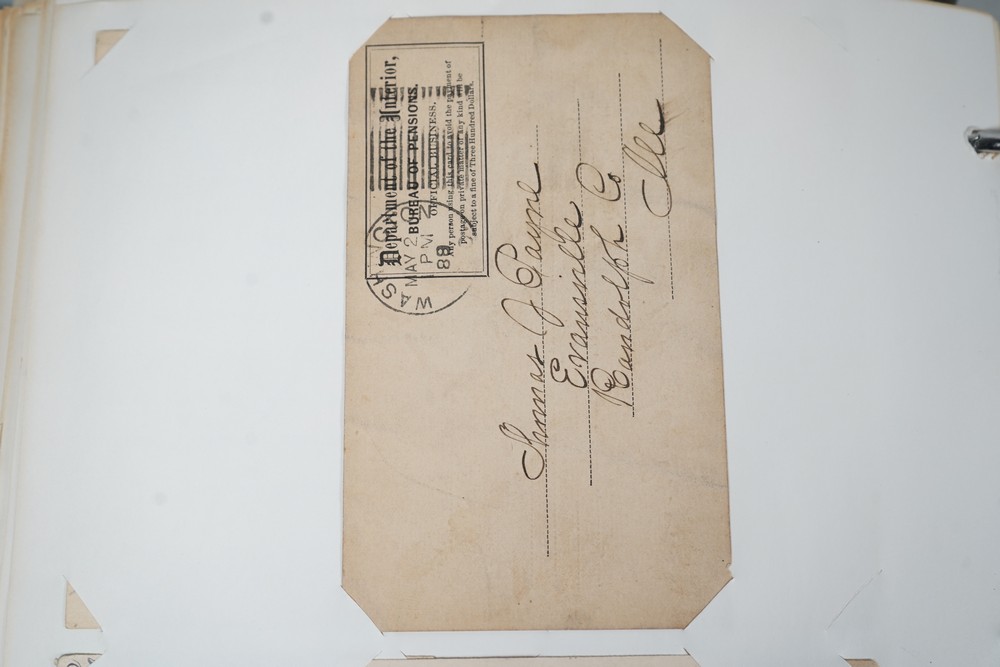 Department of the Interior,
BUREAU OF PENSIONS.
OFFICIAL BUSINESS.
Any person using this card to avoid the payment of
postage on private matter of any kind will be
subject to a fine of Three Hundred Dollars.
WASHINGTON
MAY 2
PM
89
Thomas J Payne
Evansville
Randolph Co
Ills